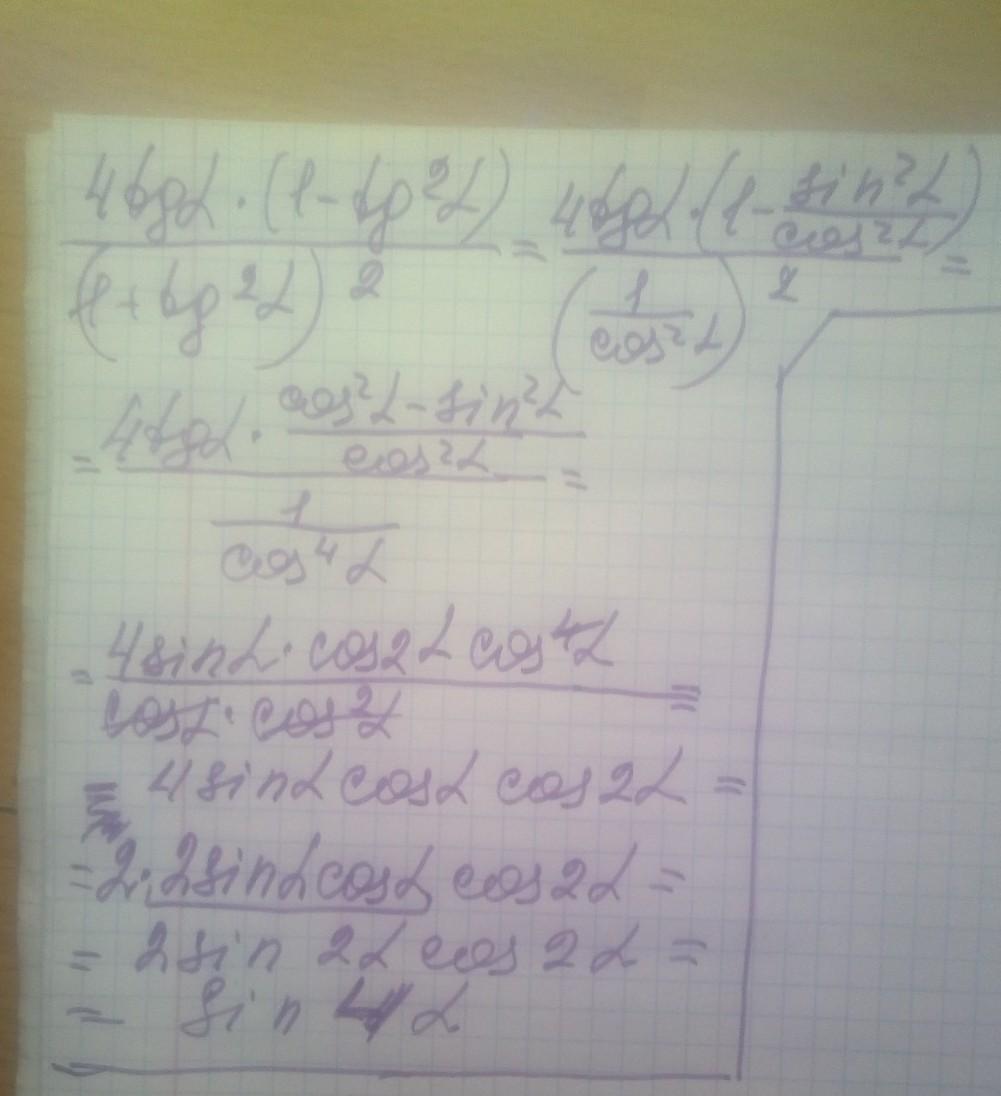 4tgα · (1 - tg²α) / (1 + tg²α)² = 4tgα · (1 - sin²α / cos²α) / (1 / cos²α)² =
= 4tgα · (cos²α - sin²α) / cos²α / (1 / cos⁴α) =
= 4sinα · cos2α cos⁴α / cosα · cos²α =
= 4sinα cosα cos2α =
= 2 · 2sinα cosα cos2α =
= 2sin 2α cos 2α =
= sin 4α